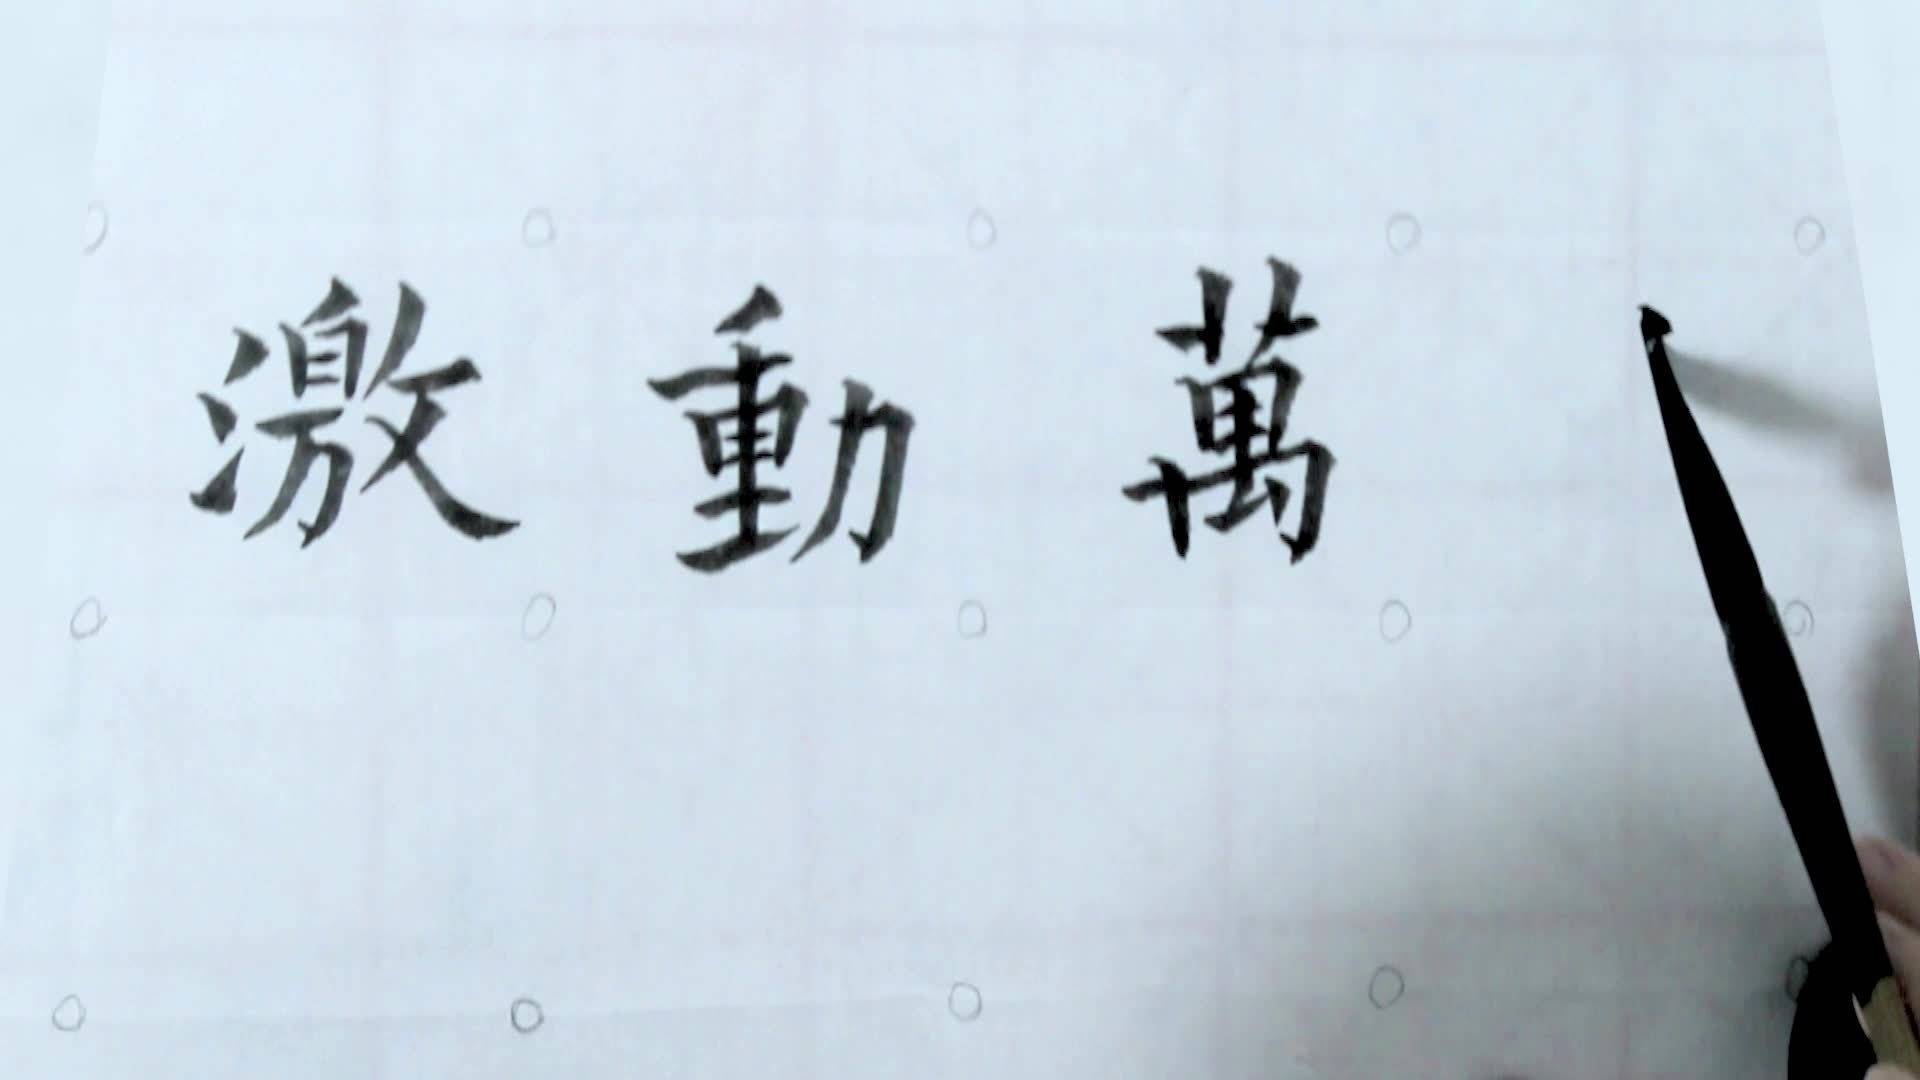 激動萬